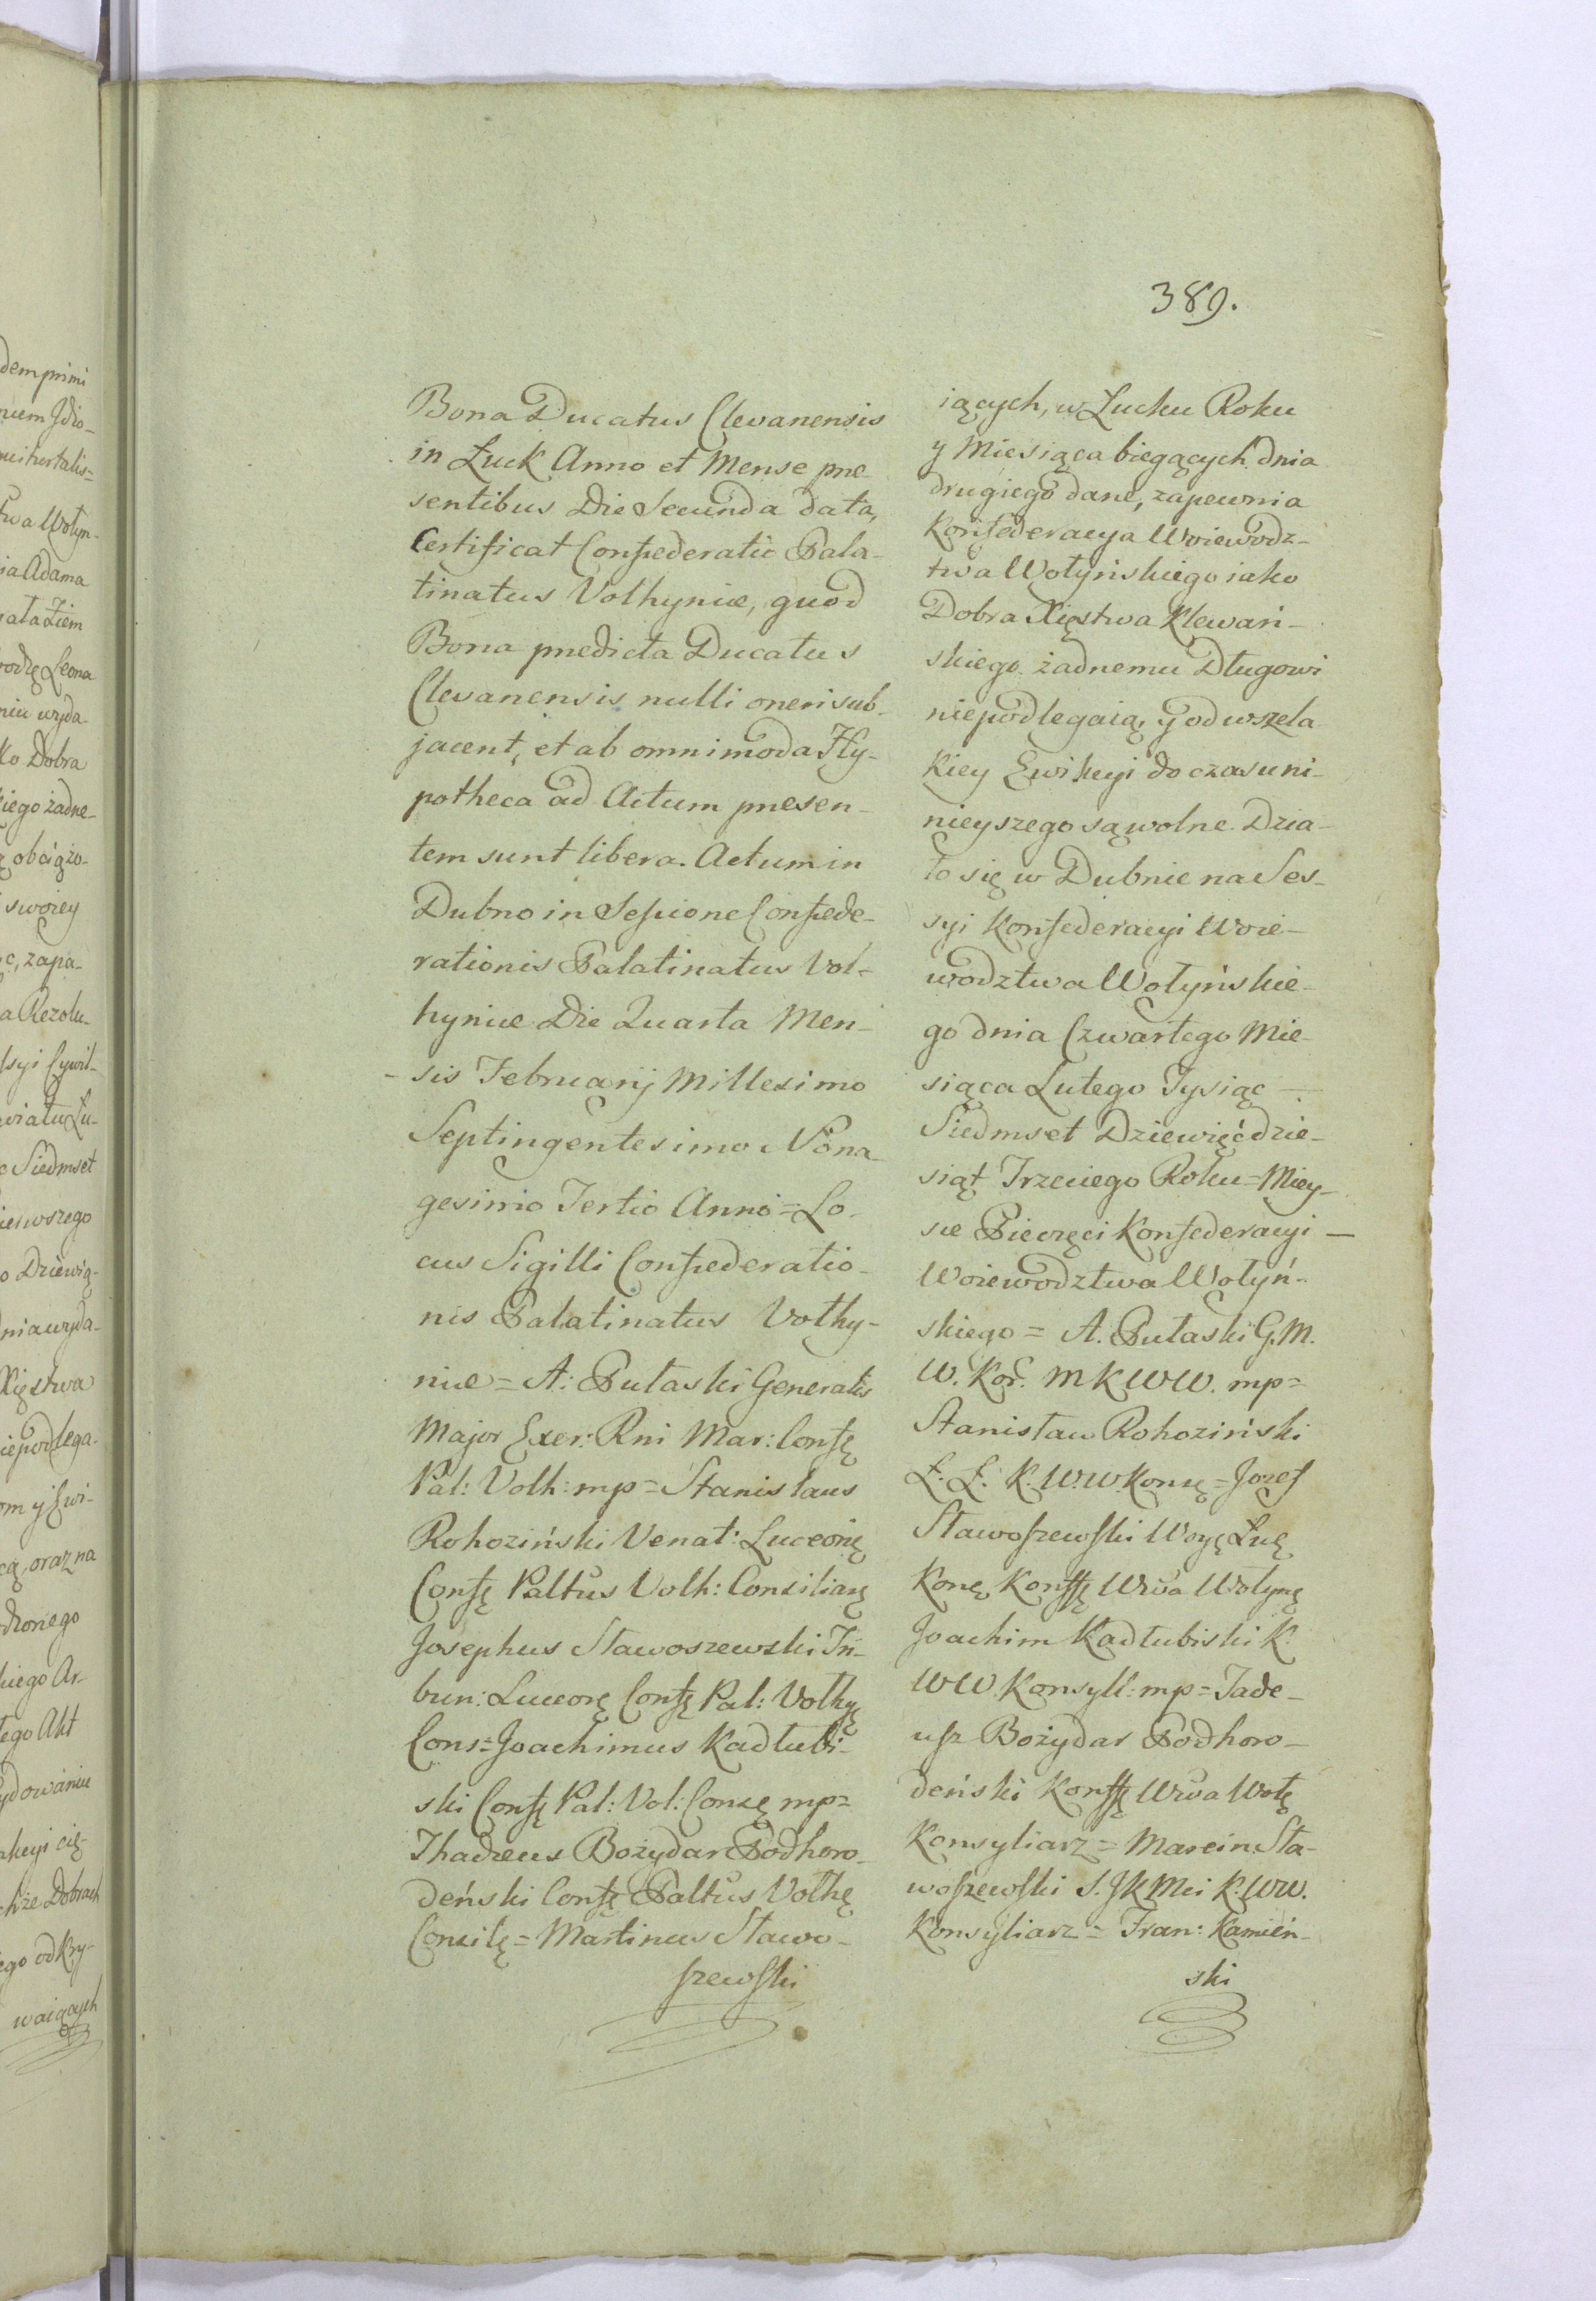 389.
Bona Ducatus Clevanensis
in Łuck Anno et Mense præ
sentibus Die Secunda data,
Certificat Confæderatio Pala-
tinatus Volhyniæ, quod
Bona prædicta Ducatus
Clevanensis nulli oneri sub-
jacent, et ab omnimoda Hy-
potheca ad Actum præsen-
tem sunt libera. Actum in
Dubno in Sessione Confæde-
rationis Palatinatus Vol-
hyniæ Die Quarta Men-
-sis Februarij Millesimo
Septingentesimo Nona
gesimo Tertio Anno = Lo-
cus Sigilli Confæderatio-
nis Palatinatus Volhy-
niæ = A: Pułaski Generalis
Major Exer: Rni Mar: Confę
Pal: Volh: mp = Stanislaus
Rohoziński Venat: Luceorię
Confę Paltus Volh: Consiliarę
Josephus Stawoszewski Tri-
bun: Luceorę Confę Pal: Volhyę
Cons = Joachimus Kadłubi-
ski Confę Pal: Vol: Consę mp =
Thadæus Bożydar Podhoro-
deński Confę Paltus Volhę
Consilę = Martinus Stawo-
szewski
iących, w Łucku Roku
y Miesiąca biegących dnia
drugiego dane, zapewnia
Konfederacya Woiewodz-
twa Wołyńskiego iako
Dobra Xięstwa Klewań-
skiego żadnemu Długowi
niepodlegaią, y od wszela
kiey Ewikcyi do czasu ni-
nieyszego są wolne. Dzia-
ło się w Dubnie na Ses-
syi Konfederacyi Woie-
wodztwa Wołyńskie-
go dnia Czwartego Mie-
siąca Lutego Tysiąc —
Siedmset Dziewięćdzie-
siąt Trzeciego Roku = Miey-
sce Pieczęci Konfederacyi —
Woiewodztwa Wołyń-
skiego = A. Pułaski G. M.
W. Kor. M K W W. mp =
Stanisław Rohoziński
Ł. Ł. K. W. W. Konsę = Jozef
Stawoszewski Woyę Łuę
Konę Konffę Wwa Wołynę
Joachim Kadłubiski K.
W W. Konsyll: mp = Tade-
usz Bożydar Podhoro-
deński Konffę Wwa Wołę
Konsyliarz = Marcin Sta-
woszewski S. J K Mci K. W W.
Konsyliarz = Fran: Kamień-
ski